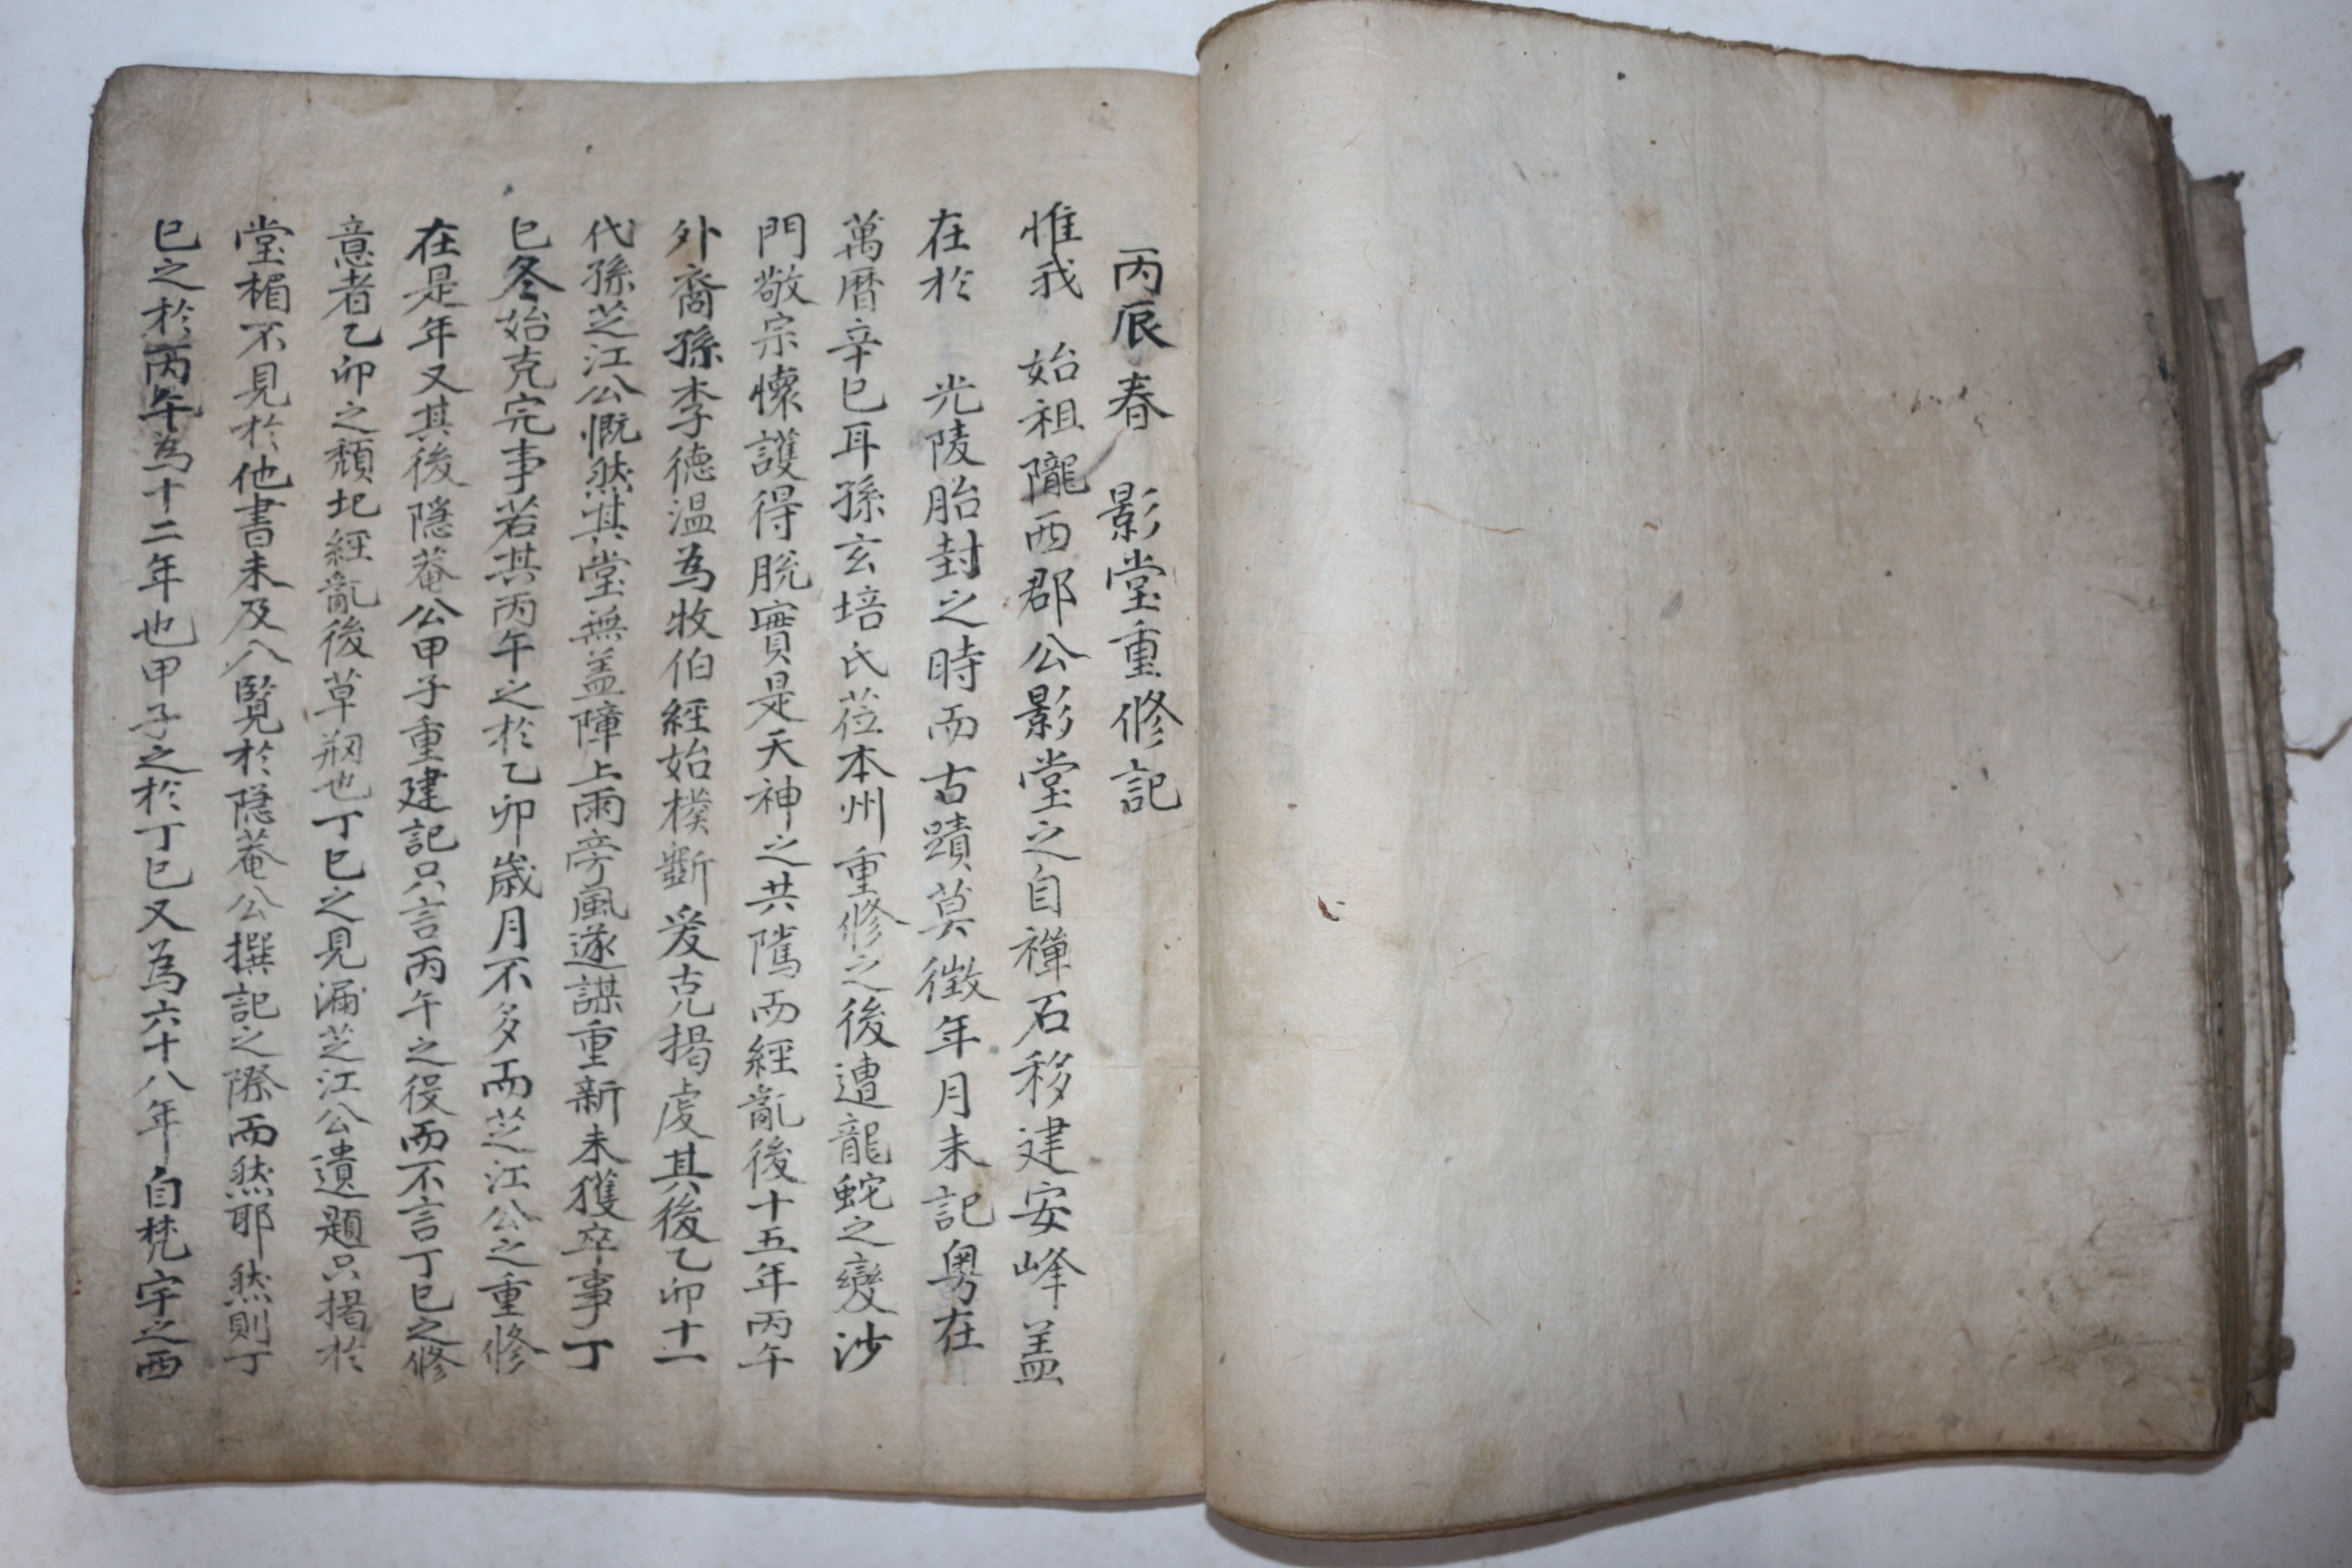 丙辰春 影堂重修記
惟我 始祖隴西郡公影堂之自禪石移建安峰盖
在於 光陵胎封之時而古蹟莫徵年月未記粤在
萬曆辛巳耳孫玄培氏莅本州重修之後遭龍蛇之變沙
門敬宗懷護得脫實是天神之共隲而經亂後十五年丙午
外裔孫李德温為牧伯經始樸斲爰克揭虔其後乙卯十一
代孫芝江公慨然其堂無盖障上雨旁風遂謀重新未獲卒事丁
巳冬始克完事若其丙午之於乙卯歲月不多而芝江公之重修
在是年又其後隱菴公甲子重建記只言丙午之役而不言丁巳之修
意者乙卯之頹圮經亂後草刱也丁巳之見漏芝江公遺題只揭於
堂楣不見於他書未及入覽於隱菴公撰記之際而然耶然則丁
巳之於丙午為十二年也甲子之於丁巳又為六十八年自梵宇之西